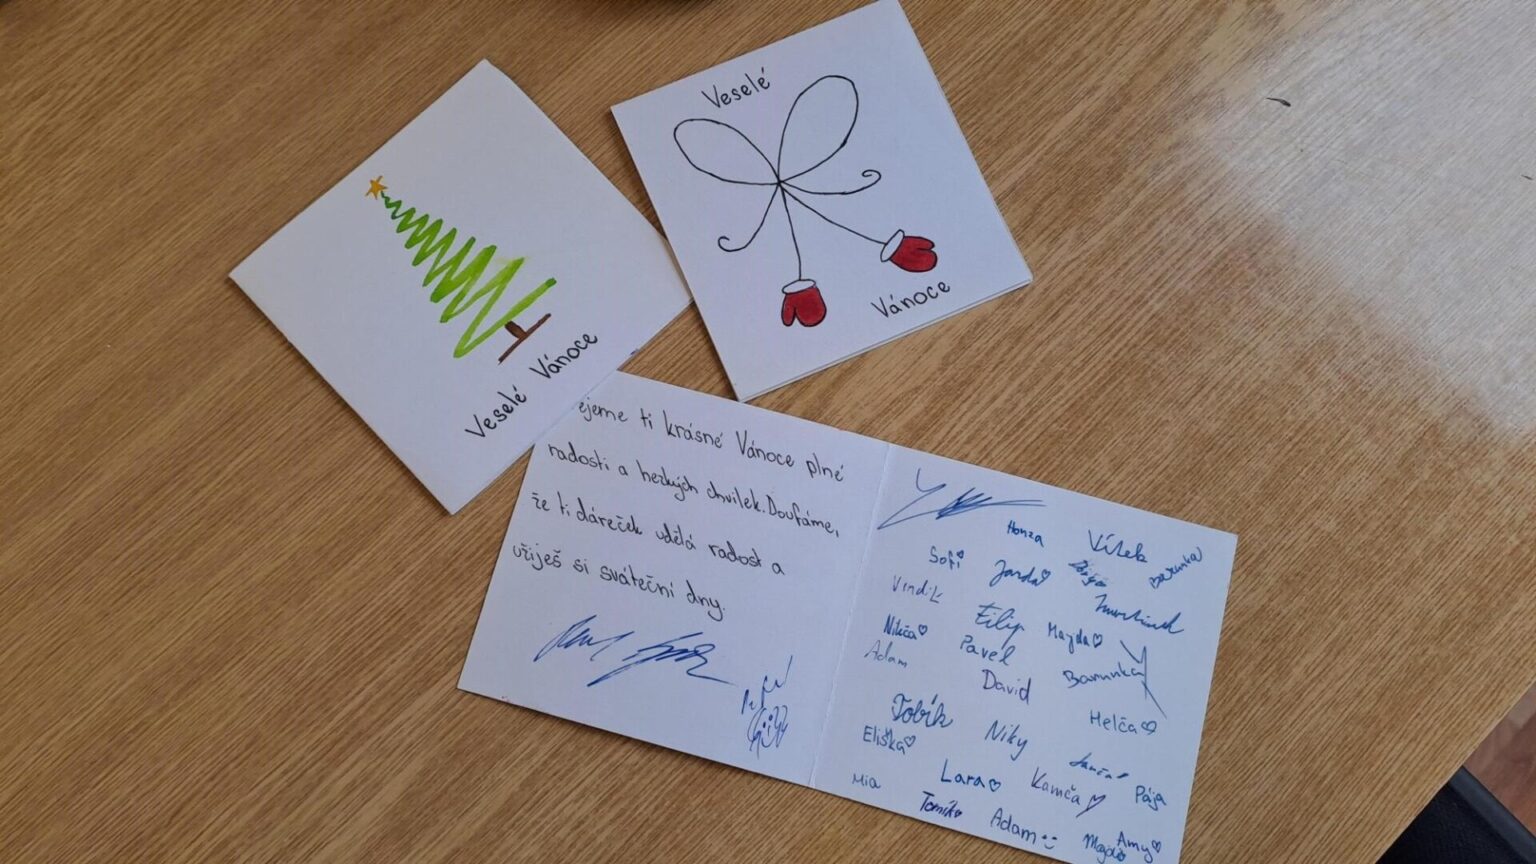 Veselé Vánoce
Veselé
Vánoce
ejeme ti krásné Vánoce plné
radosti a hezkých chvilek. Doufáme,
že ti dáreček udělá radost a
užiješ si sváteční dny.
Honza Vítek Barunka
Sofi Jarda
Vendík Filip Majda
Nikča Pavel
Adam David Barunka
Tobík Niky Helča
Eliška
Lara Kamča Pája
Mia Tomík Adam Majda Amy